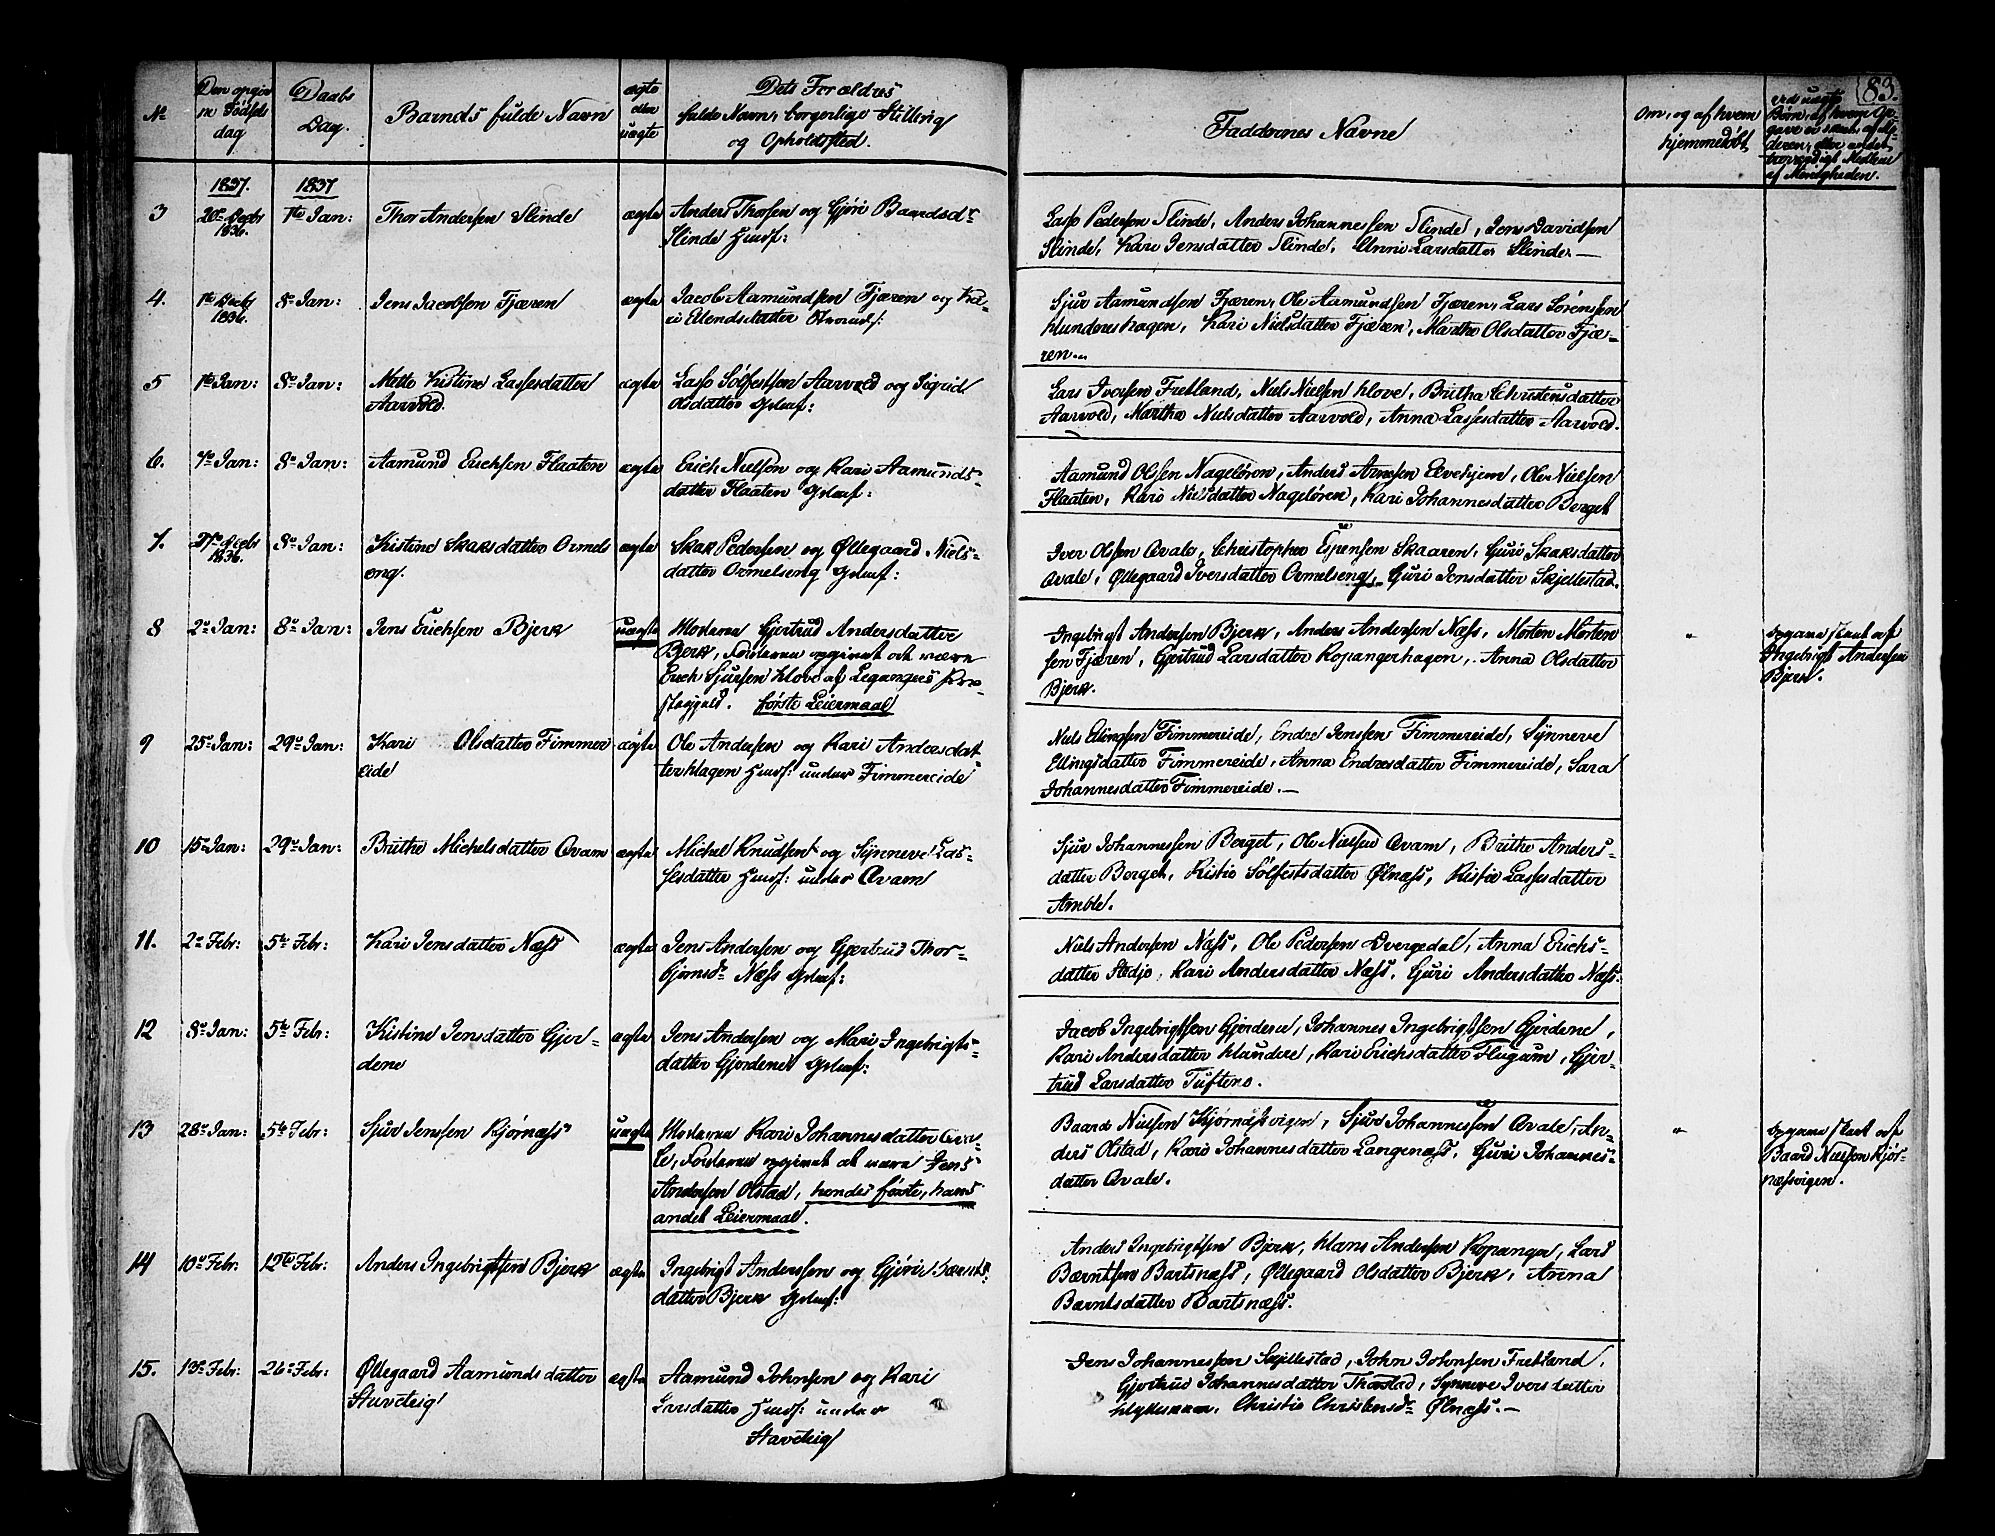 83.
№
Den opgiv
ne Fødsels
dag
Daabs
Dag.
Barnets fulde Navn
ægte
eller
uægte
Dets Forældres
fulde Navn, borgerlige Stilling
og Opholdssted.
Faddernes Navne
Om, og af hvem
hjemmedøbt
1837.
1837
3
20de Decbr
1836.
1ste Jan:
Thor Andersen Slinde
ægte
Anders Thorsen og Gjøri Baardsdr
Slinde Huusf:
Lasse Pedersen Slinde, Anders Johannessen Slinde, Jens Davidsen
Slinde, Kari Jensdatter Slinde, Anna Larsdatter Slinde. —
4.
1ste Decbr
1836.
8de Jan:
Jens Jacobsen Fjæren
ægte
Jacob Aamundsen Fjæren og Ka-
ri Erlendsdatter
Sjur Aamundsen Fjæren, Ole Aamundsen Fjæren, Lars Sørensen
Hundereshagen, Kari Nielsdatter Fjæren, Martha Olsdatter Fjæ-
ren.
5
1ste Jan:
8de Jan:
Mette Kistine Lassesdatter
Aarvold.
ægte
Lasse Sølfestsen Aarvold og Sigrid
Olsdatter Gdmf:
Lars Iversen Fretland, Niels Nielsen Hove, Brithe Christensdatter
Aarvold, Martha Nielsdatter Aarvold, Anna Lassesdatter Aarvold.
6.
7de Jan:
8de Jan:
Aamund Erichsen Flaaten
ægte
Erich Nielsen og Kari Aamunds-
datter Flaaten Gdmf:
Aamund Olsen Nageløren, Anders Arnesen Eevehjem, Ole Nielsen
Flaaten, Kari Nielsdatter Nageløren, Kari Johannesdatter Berget
7.
27de Decbr
1836.
8de Jan:
Kistine Skaksdatter Ormels
eng.
ægte
Skak Pedersen og Øllegaard Niels-
datter Ormelseng Gdmf:
Iver Olsen Qvale, Christopher Espensen Skaaren, Guri Skaksdatter
Qvale, Øllegaard Iversdatter Ormelseng, Guri Jensdatter Skjellestad.
8
2de Jan:
8de Jan:
Jens Erichsen Bjerk
uægte
Moderen Gjertrud Andersdatter
Bjerk, Faderen opgivet at være
Erich Sjursen Hove af Leganger Præ-
stegjeld. første Leiermaal
Ingebrigt Andersen Bjerk, Anders Andersen Næss, Morten Morten
sen Fjæren, Gjertrud Larsdatter Kopangerhagen, Anna Olsdatter
Bjerk.
"
opgave skeet af
Ingebrigt Andersen
Bjerk.
9
25de Jan:
29de Jan:
Kari Olsdatter Fimmer
eide
ægte
Ole Andersen og Kari Andersdat-
ter Hagen Huusf: under Fimmereide
Niels Ellingsen Fimmereide, Endre Jenssen Fimmereide, Synneve
Ellingsdatter Fimmereide, Anna Endresdatter Fimmereide, Sara
Johannesdatter Fimmereide. —
10
15de Jan:
29de Jan:
Brithe Michelsdatter Qvam
ægte
Michel Knudsen og Synneve Las-
sesdatter Huusf: under Qvam
Sjur Johannessen Berget, Ole Nielsen Qvam, Brithe Anders-
datter Berget, Kistie Sølfestsdatter Ølnæss, Kistie Lassesdatter
Amble.
11.
2de Febr:
5te Febr:
Kari Jensdatter Næss
ægte
Jens Andersen og Gjertrud Thor-
bjørnsdr Næss Gdmf:
Niels Andersen Næss, Ole Pedersen Dvergedal, Anna Erichs-
datter Stedje, Kari Andersdatter Næss, Guri Andersdatter Næss.
12
8de Jan:
5te Febr:
Kistine Jensdatter Gjer-
dene
ægte
Jens Andersen og Mari Ingebrigts-
datter Gjerdene Gdmf:
Jacob Ingebrigtsen Gjerdene, Johannes Ingebrigtsen Gjerdene,
Kari Andersdatter Hundere, Kari Erichsdatter Flugum, Gjer-
trud Larsdatter Tuftene.
13
28de Jan:
5te Febr:
Sjur Jenssen Kjørnæss
uægte
Moderen Kari Johannesdatter Qva-
le, Faderen opgivet at være Jens
Andersen Olstad, hendes første, hans
andet Leiermaal.
Baard Nielsen Kjørnæsvigen, Sjur Johannessen Qvale, An-
ders Olstad, Kari Johannesdatter Langenæss, Guri Johannes-
datter Qvale.
"
opgave skeet af
Baard Nielsen Kjør-
næssvigen.
14
10de Febr:
12te Febr:
Anders Ingebrigtsen Bjerk
ægte
Ingebrigt Anderssen og Gjøri Bærnts-
datter Bjerk Gdmf:
Anders Ingebrigtsen Bjerk, Hans Andersen Kopanger, Lars
Bærntsen Bartsnæss, Øllegaard Olsdatter Bjerk, Anna
Bærntsdatter Bartsnæss.
15.
13de Febr:
26de Febr:
Øllegaard Aamundsdatter
Staveteig
ægte
Aamund Johnsen og Kari
Larsdatter Huusf: under
Staveteig
Jens Johannessen Skjellestad, John Johnsen Fretland,
Gjertrud Johannesdatter Thorstad, Synneve Iversdatter
Christie Christensdr Ølnæss. —